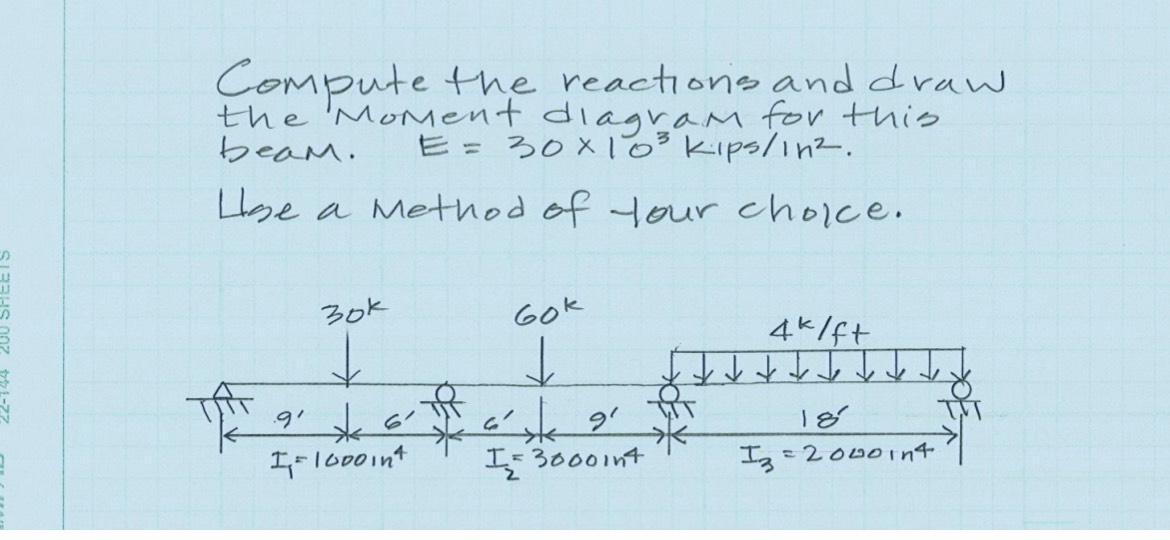 Compute the reactions and draw
the Moment diagram for this
beam. E = 30 x 10³ kips/in².
Use a Method of your choice.
30k 60k
4k/ft
9' 6' 6' 9' 18'
I₁ = 1000in⁴ I₂ = 3000in⁴ I₃ = 2000in⁴
22-144 200 SHEETS